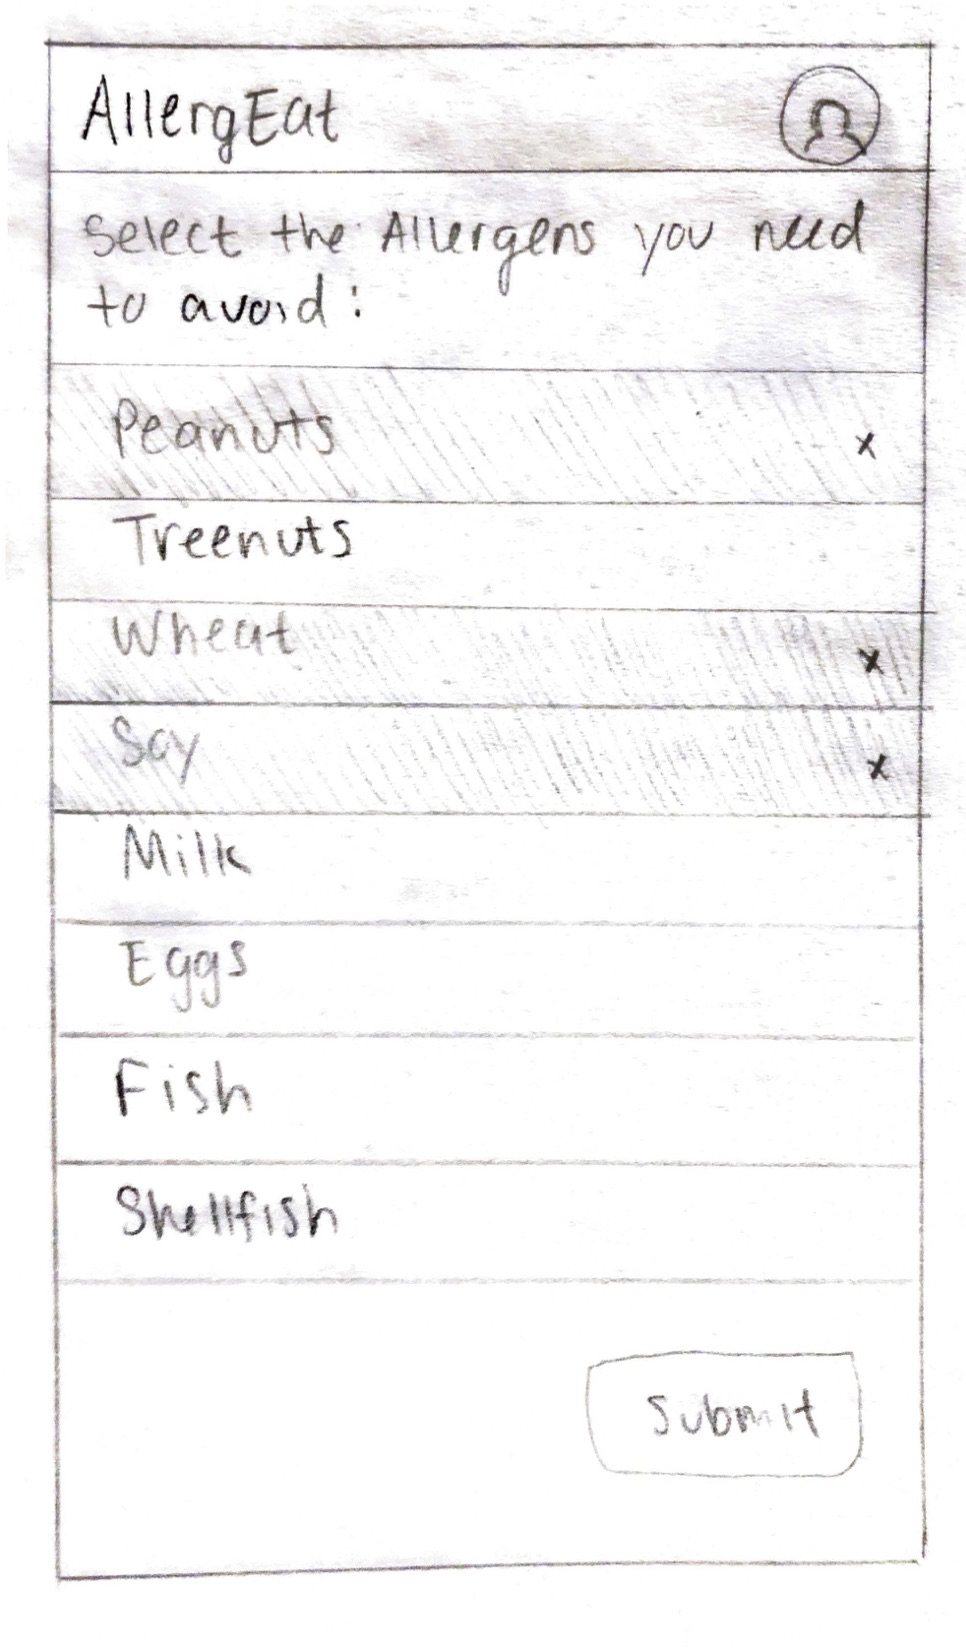 AllergEat
Select the Allergens you need
to avoid:
Peanuts x
Treenuts
Wheat x
Soy x
Milk
Eggs
Fish
Shellfish
Submit